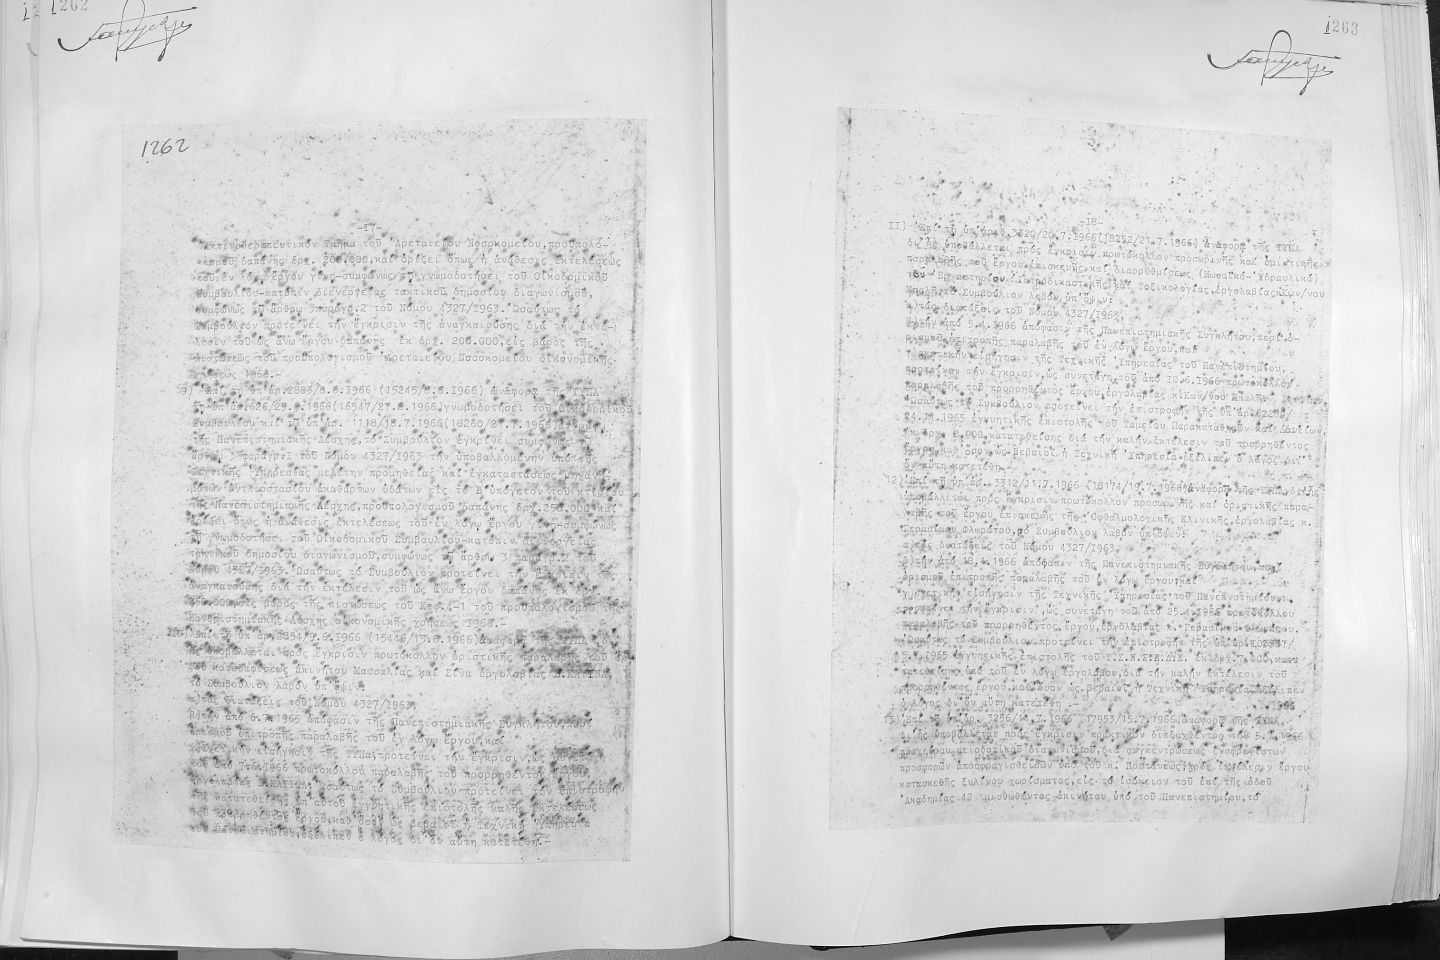 1262
1262
-17-
Ἀκτινοθεραπευτικόν Τμῆμα τοῦ Ἀρεταιείου Νοσοκομείου, προϋπολο-
γισμοῦ δαπάνης δρχ. 200.000, καί ὁρίζει ὅπως ἡ ἀνάθεσις ἐκτελέσεως
τοῦ ἐν λόγω ἔργου γίνη-συμφώνως τῇ γνωμοδοτήσει τοῦ Οἰκοδομικοῦ
Συμβουλίου-κατόπιν διενεργείας τακτικοῦ δημοσίου διαγωνισμοῦ,
συμφώνως τῷ ἄρθρῳ 3 παράγρ.2 τοῦ Νόμου 4327/1963. Ὡσαύτως τό
Συμβούλιον προτείνει τήν ἔγκρισιν τῆς ἀναγκαιούσης διά τήν ἐκτέ-
λεσιν τοῦ ὡς ἄνω ἔργου δαπάνης ἐκ δρχ. 200.000, εἰς βάρος τῆς
πιστώσεως τοῦ προϋπολογισμοῦ Ἀρεταιείου Νοσοκομείου οἰκονομικῆς
χρήσεως 1966.-
9) Ἐπί τῇ ὑπ' ἀρ. 2803/8.6.1966 (15245/8.6.1966) ἀναφορᾷ τῆς ΤΥΠΑ
τῇ ὑπ' ἀρ. 626/25.6.1966 (16547/27.6.1966) γνωμοδοτήσει τοῦ Οἰκοδομικοῦ
Συμβουλίου καί τῇ ὑπ' ἀρ. 1118/18.7.1966 (18260/21.7.1966)
τῆς Πανεπιστημιακῆς Λέσχης, τό Συμβούλιον ἐγκρίνει συμφώνως τῷ
ἄρθρῳ 3 παράγρ. 1 τοῦ Νόμου 4327/1963 τήν ὑποβαλλομένην ὑπό τῆς
Τεχνικῆς Ὑπηρεσίας μελέτην προμηθείας καί ἐγκαταστάσεως
ἀντλιοστασίου ἀκαθάρτων ὑδάτων εἰς τό Β' ὑπόγειον τοῦ κτιρίου
τῆς Πανεπιστημιακῆς Λέσχης, προϋπολογισμοῦ δαπάνης δρχ. 250.000 καί
ὁρίζει ὅπως ἡ ἀνάθεσις ἐκτελέσεως τοῦ ἐν λόγω ἔργου γίνη-συμφώνως
τῇ γνωμοδοτήσει τοῦ Οἰκοδομικοῦ Συμβουλίου-κατόπιν διενεργείας
τακτικοῦ δημοσίου διαγωνισμοῦ, συμφώνως τῷ ἄρθρῳ 3 παράγρ. 2 τοῦ
Νόμου 4327/1963. Ὡσαύτως τό Συμβούλιον προτείνει τήν ἔγκρισιν τῆς
ἀναγκαιούσης διά τήν ἐκτέλεσιν τοῦ ὡς ἄνω ἔργου δαπάνης ἐκ δρχ.
250.000, εἰς βάρος τῆς πιστώσεως τοῦ Κεφ. 4-1 τοῦ προϋπολογισμοῦ τῆς
Πανεπιστημιακῆς Λέσχης οἰκονομικῆς χρήσεως 1966.-
10) Ἐπί τῇ ὑπ' ἀρ. 2854/9.6.1966 (15446/13.6.1966) ἀναφορᾷ
ὑποβάλλεται πρός ἔγκρισιν πρωτόκολλον ὁριστικῆς παραλαβῆς τοῦ
κατεδαφίσεως ἀκινήτου Μασσαλίας καί Σίνα ἐργολαβίας
τό Συμβούλιον λαβόν ὑπ' ὄψιν:
α) τάς διατάξεις τοῦ Νόμου 4327/1963,
β) τήν ἀπό 6.7.1965 ἀπόφασιν τῆς Πανεπιστημιακῆς Συγκλήτου, περί
ὁρισμοῦ ἐπιτροπῆς παραλαβῆς τοῦ ἐν λόγω ἔργου, καί
γ) σχετικήν εἰσήγησιν τῆς ΤΥΠΑ, προτείνει τήν ἔγκρισιν, ὡς συνετάγη
τοῦ ἀπό 7.6.1966 πρωτοκόλλου παραλαβῆς τοῦ προρρηθέντος ἔργου,
ἐργολαβίας Ὡσαύτως τό Συμβούλιον προτείνει τήν ἐπιστροφήν
τῆς κατατεθείσης ὑπ' αὐτοῦ ἐγγυητικῆς ἐπιστολῆς καλῆς ἐκτελέσεως
τοῦ προρρηθέντος ἔργου, καθ' ὅσον ὡς βεβαιοῖ ἡ Τεχνική Ὑπηρεσία
τοῦ Πανεπιστημίου, ἐξέλιπεν ὁ λόγος δι' ὅν αὕτη κατετέθη.-
1263
-18-
11) Ἐπί τῇ ὑπ' ἀριθ. 3320/20.7.1966 (18252/21.7.1966) ἀναφορᾷ τῆς ΤΥΠΑ
δι' ἧς ὑποβάλλεται πρός ἔγκρισιν πρωτόκολλον προσωρινῆς καί ὁριστικῆς
παραλαβῆς τοῦ ἔργου ἐπισκευῆς καί διαρρυθμίσεως (Μωσαϊκά-Ὑδραυλικά)
τοῦ Ἐργαστηρίου Ἰατροδικαστικῆς καί Τοξικολογίας, ἐργολαβίας Κων/νου
τό Συμβούλιον λαβόν ὑπ' ὄψιν:
α) τάς διατάξεις τοῦ Νόμου 4327/1963,
β) τήν ἀπό 5.4.1966 ἀπόφασιν τῆς Πανεπιστημιακῆς Συγκλήτου, περί ὁ-
ρισμοῦ ἐπιτροπῆς παραλαβῆς τοῦ ἐν λόγω ἔργου, καί
γ) σχετικήν εἰσήγησιν τῆς Τεχνικῆς Ὑπηρεσίας τοῦ Πανεπιστημίου,
προτείνει τήν ἔγκρισιν, ὡς συνετάγη, τοῦ ἀπό 10.6.1966 πρωτοκόλλου
παραλαβῆς τοῦ προρρηθέντος ἔργου, ἐργολαβίας κ. Κων/νου
Ὡσαύτως τό Συμβούλιον προτείνει τήν ἐπιστροφήν τῆς ὑπ' ἀρ.
24.11.1965 ἐγγυητικῆς ἐπιστολῆς τοῦ Ταμείου Παρακαταθηκῶν καί Δανείων,
ἐκ δρχ. 9.000, κατατεθείσης διά τήν καλήν ἐκτέλεσιν τοῦ προρρηθέντος
ἔργου, καθ' ὅσον ὡς βεβαιοῖ ἡ Τεχνική Ὑπηρεσία ἐξέλιπεν ὁ λόγος δι'
ὅν αὕτη κατετέθη.-
12) Ἐπί τῇ ὑπ' ἀρ. 3312/11.7.1966 (18174/19.7.1966) ἀναφορᾷ τῆς ΤΥΠΑ, δι' ἧς
ὑποβάλλεται πρός ἔγκρισιν πρωτόκολλον προσωρινῆς καί ὁριστικῆς παρα-
λαβῆς τοῦ ἔργου ἐπισκευῆς τῆς Ὀφθαλμολογικῆς Κλινικῆς, ἐργολαβίας κ.
Γερασίμου Φλωράτου, τό Συμβούλιον λαβόν ὑπ' ὄψιν:
α) τάς διατάξεις τοῦ Νόμου 4327/1963,
β) τήν ἀπό 1966 ἀπόφασιν τῆς Πανεπιστημιακῆς Συγκλήτου, περί
ὁρισμοῦ ἐπιτροπῆς παραλαβῆς τοῦ ἐν λόγω ἔργου, καί
γ) σχετικήν εἰσήγησιν τῆς Τεχνικῆς Ὑπηρεσίας τοῦ Πανεπιστημίου,
προτείνει τήν ἔγκρισιν, ὡς συνετάγη, τοῦ ἀπό 25.4.1966 πρωτοκόλλου
παραλαβῆς τοῦ προρρηθέντος ἔργου, ἐργολαβίας κ. Γερασίμου Φλωράτου.
Ὡσαύτως τό Συμβούλιον προτείνει τήν ἐπιστροφήν τῆς ὑπ' ἀρ.
5.7.1965 ἐγγυητικῆς ἐπιστολῆς τοῦ Τ.Σ.Μ.Ε.Δ.Ε. ἐκ δρχ. 7.000, κατα-
τεθείσης ὑπό τοῦ ἐν λόγω ἐργολάβου, διά τήν καλήν ἐκτέλεσιν τοῦ
προρρηθέντος ἔργου, καθ' ὅσον ὡς βεβαιοῖ ἡ Τεχνική Ὑπηρεσία, ἐξέλιπεν
ὁ λόγος δι' ὅν αὕτη κατετέθη.-
13) Ἐπί τῇ ὑπ' ἀρ. 3256/14.7.1966 (17953/15.7.1966) ἀναφορᾷ τῆς ΤΥΠΑ,
δι' ἧς ὑποβάλλεται πρός ἔγκρισιν πρακτικόν διεξαχθέντος τήν 5.7.1966
προχείρου μειοδοτικοῦ διαγωνισμοῦ, διά συγκεντρώσεως ἐνσφραγίστων
προσφορῶν ἀποσφραγισθεισῶν ὑπό τοῦ κ. Πρυτάνεως, πρός ἐκτέλεσιν ἔργου
κατασκευῆς ξυλίνου χωρίσματος, εἰς τό ἰσόγειον τοῦ ἐπί τῆς ὁδοῦ
Ἀκαδημίας 42 μισθωθέντος ἀκινήτου ὑπό τοῦ Πανεπιστημίου, τό